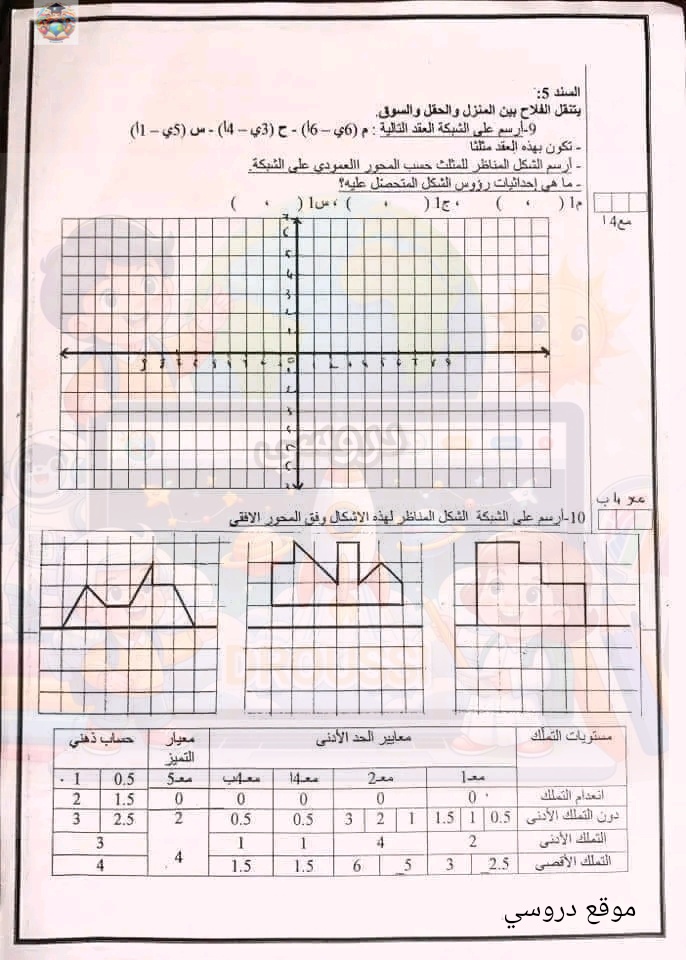 السند 5:
يتنقل الفلاح بين المنزل والحقل والسوق.
9-أرسم على الشبكة العقد التالية : م (6ي – 6أ) - ح (3ي – 4أ) - س (5ي – 1أ)
- تكون بهذه العقد مثلثا
- أرسم الشكل المناظر للمثلث حسب المحور االعمودي على الشبكة.
- ما هي إحداثيات رؤوس الشكل المتحصل عليه؟
م1 ( ، ) ، ج1 ( ، ) ، س1 ( ، )
مع4 أ
دروسي
مع 4 ب
10-أرسم على الشبكة الشكل المناظر لهذه الاشكال وفق المحور الافقي
DROUSSI
مستويات التملك معايير الحد الأدنى معيار التميز حساب ذهني
معـ1 معـ2 معـ4أ معـ4ب معـ5 0.5 1
انعدام التملك 0 0 0 0 0 1.5 2
دون التملك الأدنى 0.5 1 1.5 1 2 3 0.5 0.5 2 2.5 3
التملك الأدنى 2 4 1 1 4 3
التملك الأقصى 2.5 3 5 6 1.5 1.5 4
موقع دروسي